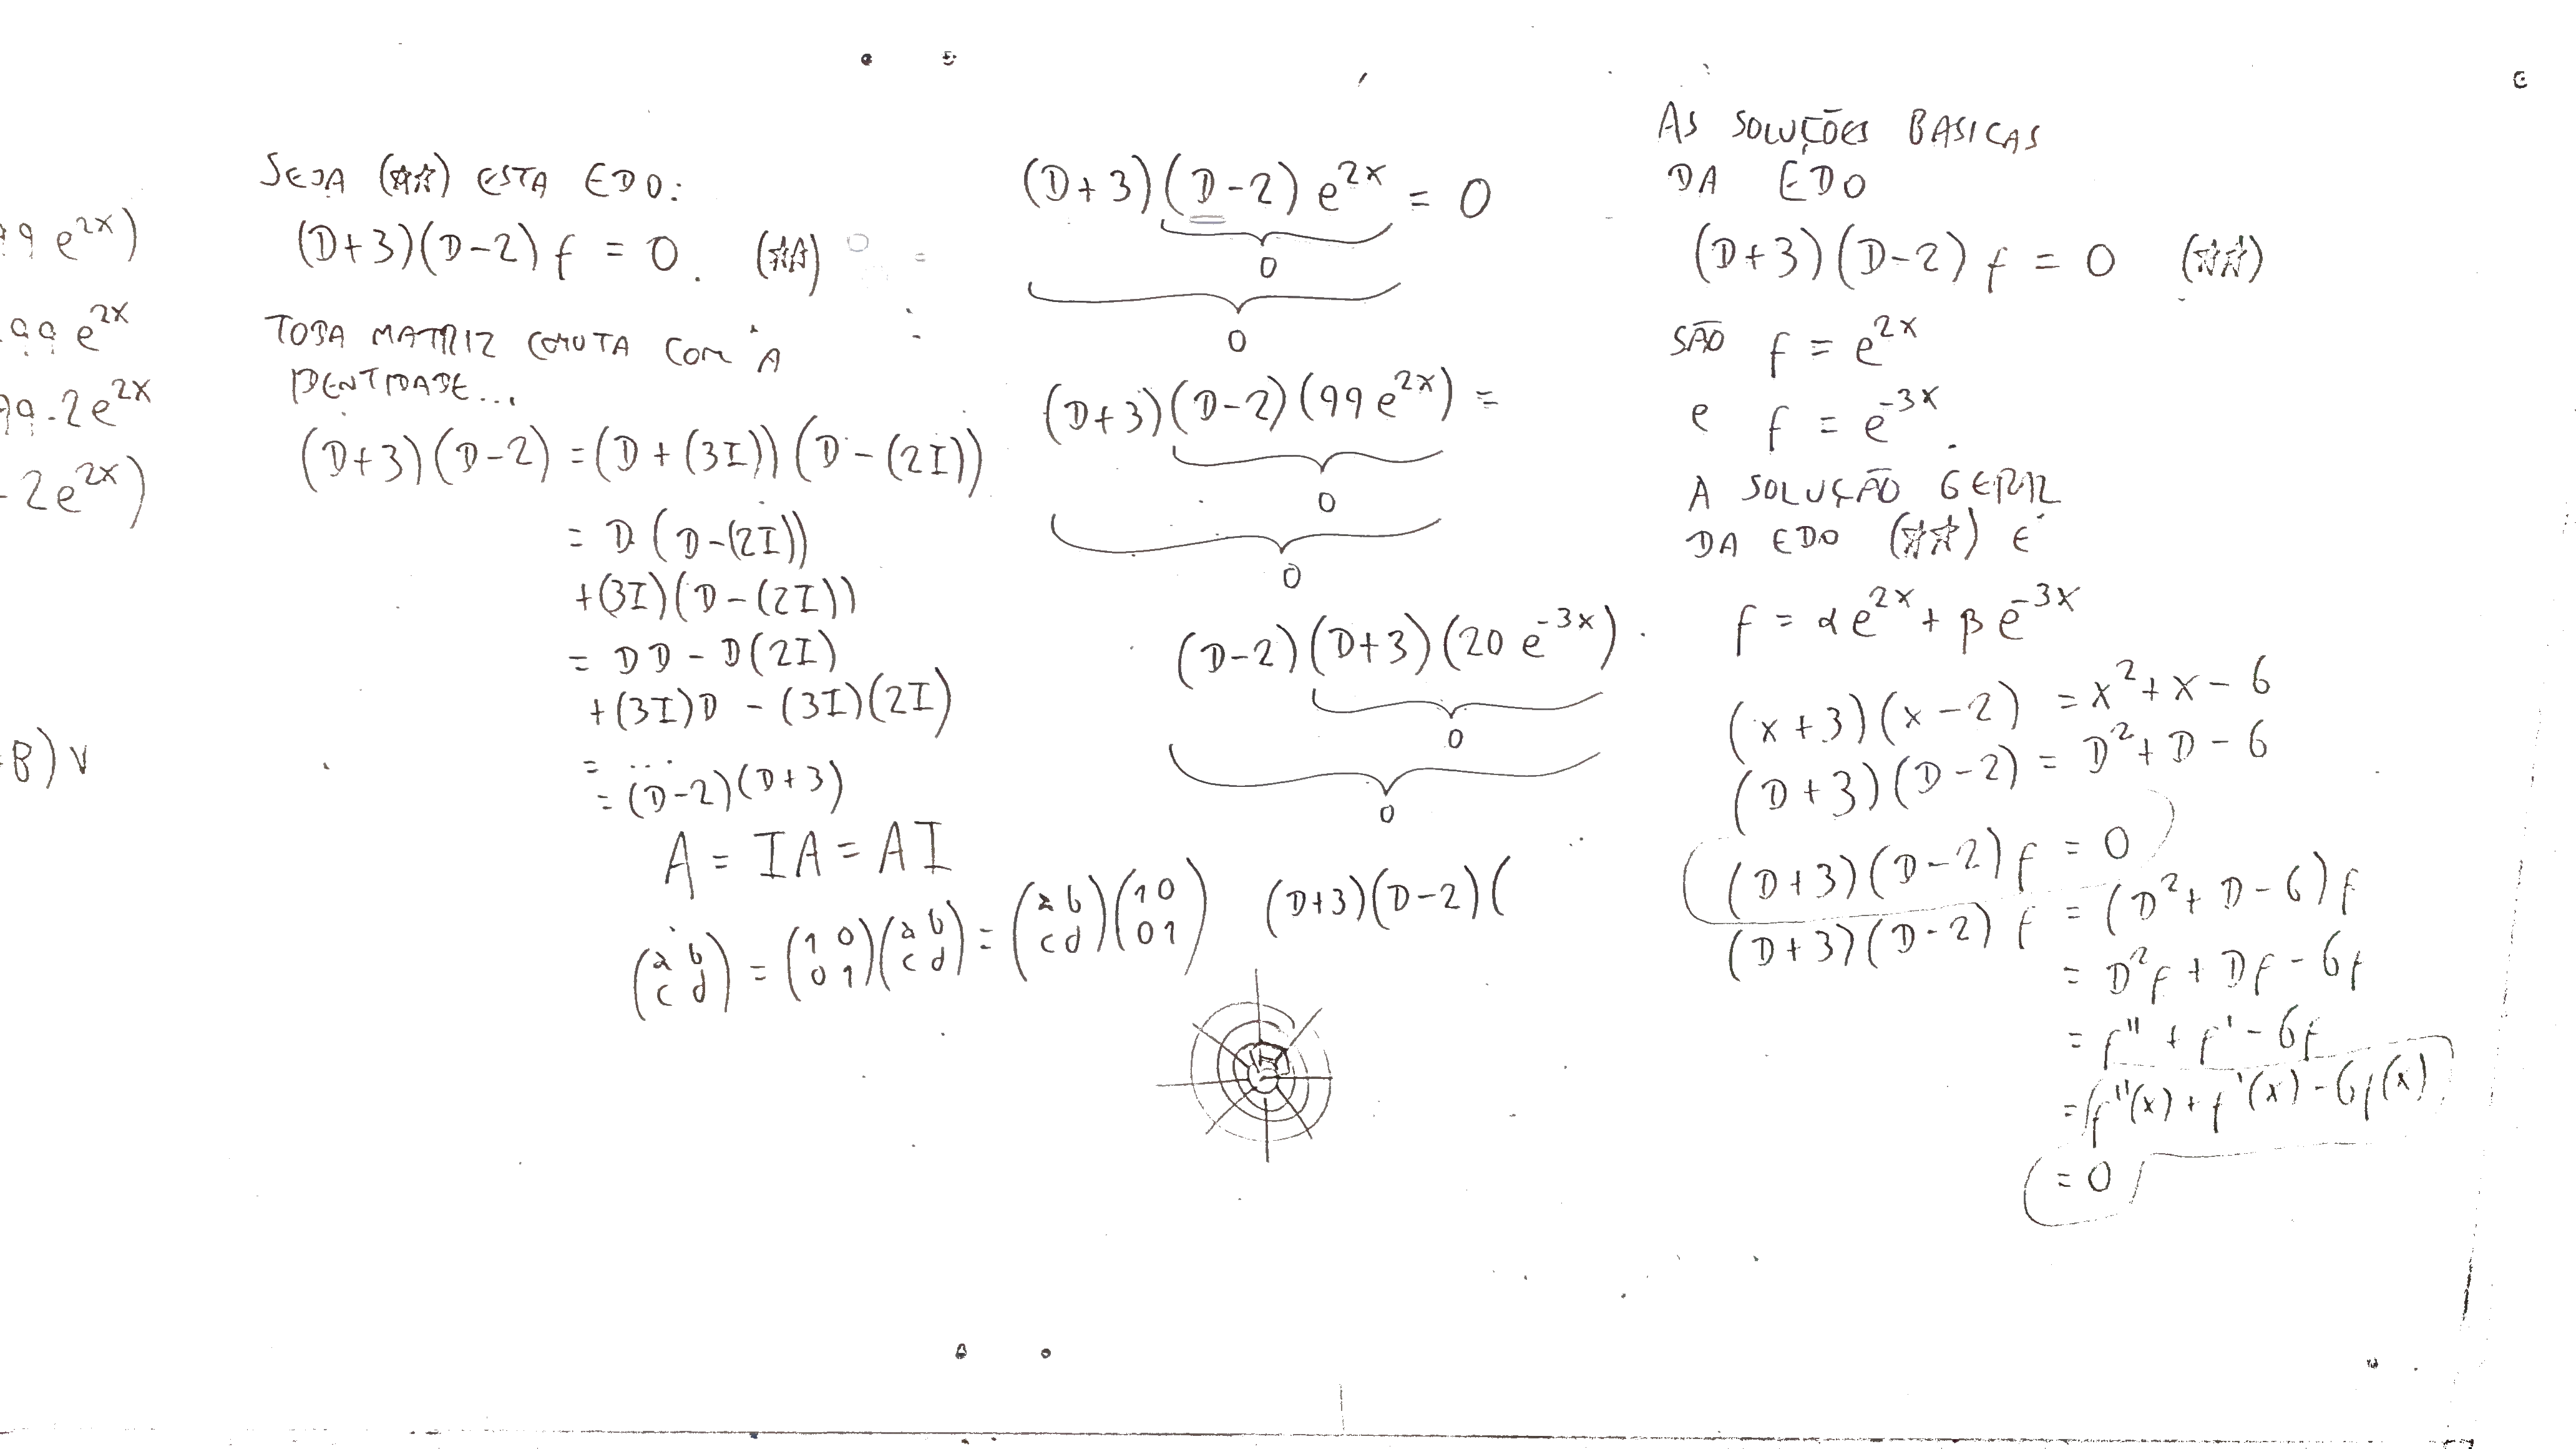 9 e^{2x})
99 e^{2x}
99·2e^{2x}
-2e^{2x})
B)v
SEJA (☆☆) ESTA EDO:
(D+3)(D-2) f = 0. (☆☆)
TODA MATRIZ COMUTA COM A
IDENTIDADE...
(D+3)(D-2) = (D + (3I))(D - (2I))
= D (D-(2I))
+(3I)(D-(2I))
= DD - D(2I)
+(3I)D - (3I)(2I)
= ...
= (D-2)(D+3)
A = IA = AI
(a b
c d) = (1 0
0 1)(a b
c d) = (a b
c d)(1 0
0 1)
(D+3)(D-2) e^{2x} = 0
0
0
(D+3)(D-2)(99 e^{2x}) =
0
0
(D-2)(D+3)(20 e^{-3x}).
0
0
(D+3)(D-2)(
AS SOLUÇÕES BASICAS
DA EDO
(D+3)(D-2) f = 0 (☆☆)
SÃO f = e^{2x}
e f = e^{-3x}.
A SOLUÇÃO GERAL
DA EDO (☆☆) É
f = αe^{2x} + βe^{-3x}
(x+3)(x-2) = x²+x-6
(D+3)(D-2) = D²+D-6
(D+3)(D-2) f = 0
(D+3)(D-2) f = (D²+D-6) f
= D²f + Df - 6f
= f'' + f' - 6f
= f''(x) + f'(x) - 6f(x)
= 0